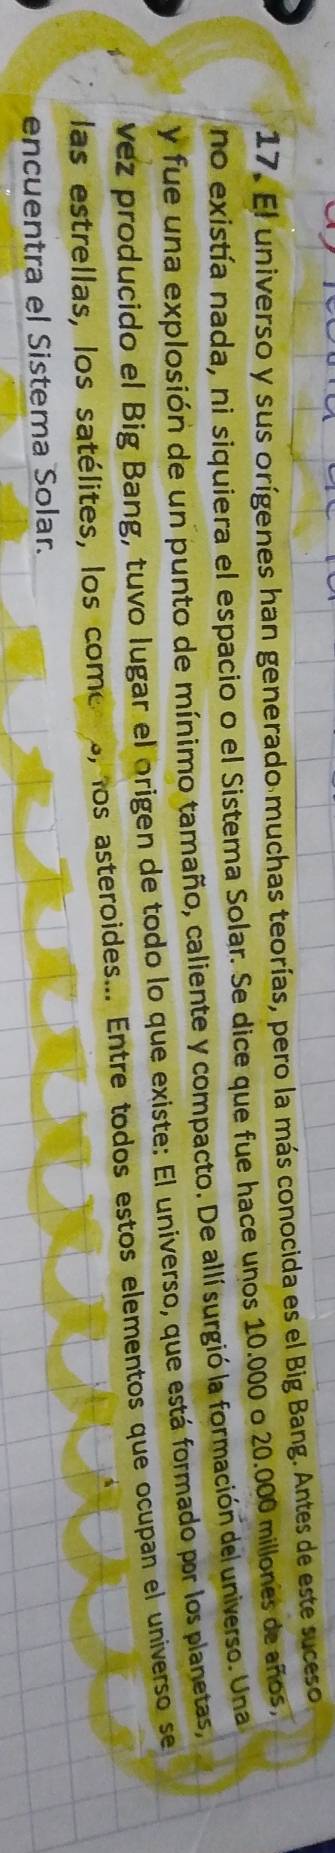 17. El universo y sus orígenes han generado muchas teorías, pero la más conocida es el Big Bang. Antes de este suceso
no existía nada, ni siquiera el espacio o el Sistema Solar. Se dice que fue hace unos 10.000 o 20.000 millones de años,
y fue una explosión de un punto de mínimo tamaño, caliente y compacto. De allí surgió la formación del universo. Una
vez producido el Big Bang, tuvo lugar el origen de todo lo que existe: El universo, que está formado por los planetas,
las estrellas, los satélites, los asteroides... Entre todos estos elementos que ocupan el universo se
encuentra el Sistema Solar.